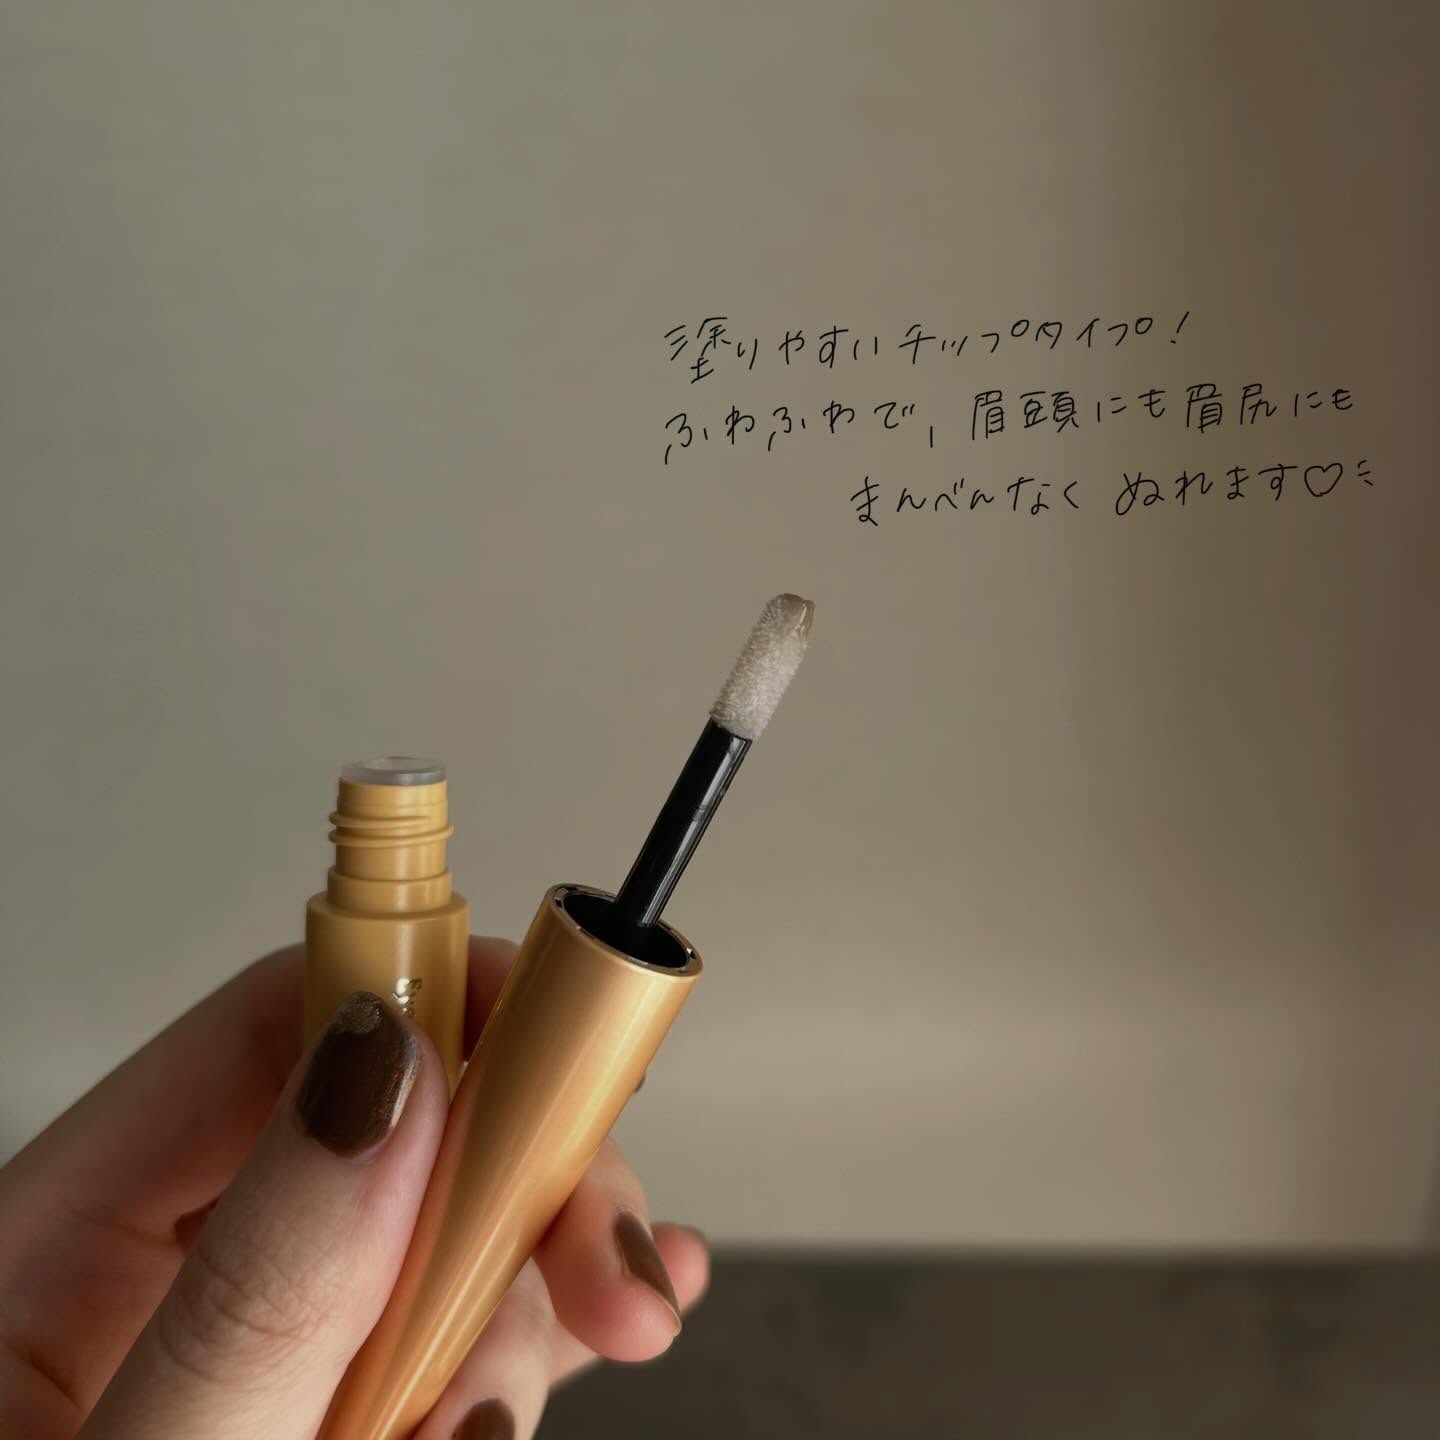 塗りやすいチップタイプ!
ふわふわで、眉頭にも眉尻にも
まんべんなく ぬれます♡
Eye